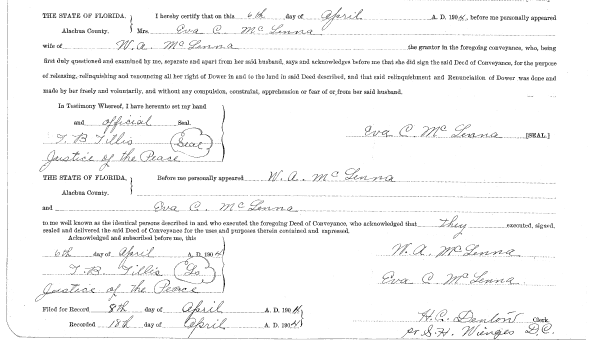 THE STATE OF FLORIDA, I hereby certify that on this 6th day of April A. D. 1904, before me personally appeared
Alachua County. Mrs. Eva C. McLenna
wife of W. A. McLenna the grantor in the foregoing conveyance, who, being
first duly questioned and examined by me, separate and apart from her said husband, says and acknowledges before me that she did sign the said Deed of Conveyance, for the purpose
of releasing, relinquishing and renouncing all her right of Dower in and to the land in said Deed described, and that said relinquishment and Renunciation of Dower was done and
made by her freely and voluntarily, and without any compulsion, constraint, apprehension or fear of or from her said husband.
In Testimony Whereof, I have hereunto set my hand
and official Seal.
T. B. Tillis Seal Eva C. McLenna [SEAL.]
Justice of the Peace
THE STATE OF FLORIDA, Before me personally appeared W. A. McLenna
Alachua County.
and Eva C. McLenna
to me well known as the identical persons described in and who executed the foregoing Deed of Conveyance, who acknowledged that they executed, signed,
sealed and delivered the said Deed of Conveyance for the uses and purposes therein contained and expressed.
Acknowledged and subscribed before me, this
6th day of April A. D. 1904 W. A. McLenna
T. B. Tillis Ls Eva C. McLenna
Justice of the Peace
Filed for Record 8th day of April A. D. 1904 H. C. Denton Clerk
Recorded 18th day of April A. D. 1904 pr S. H. Wienges D. C.